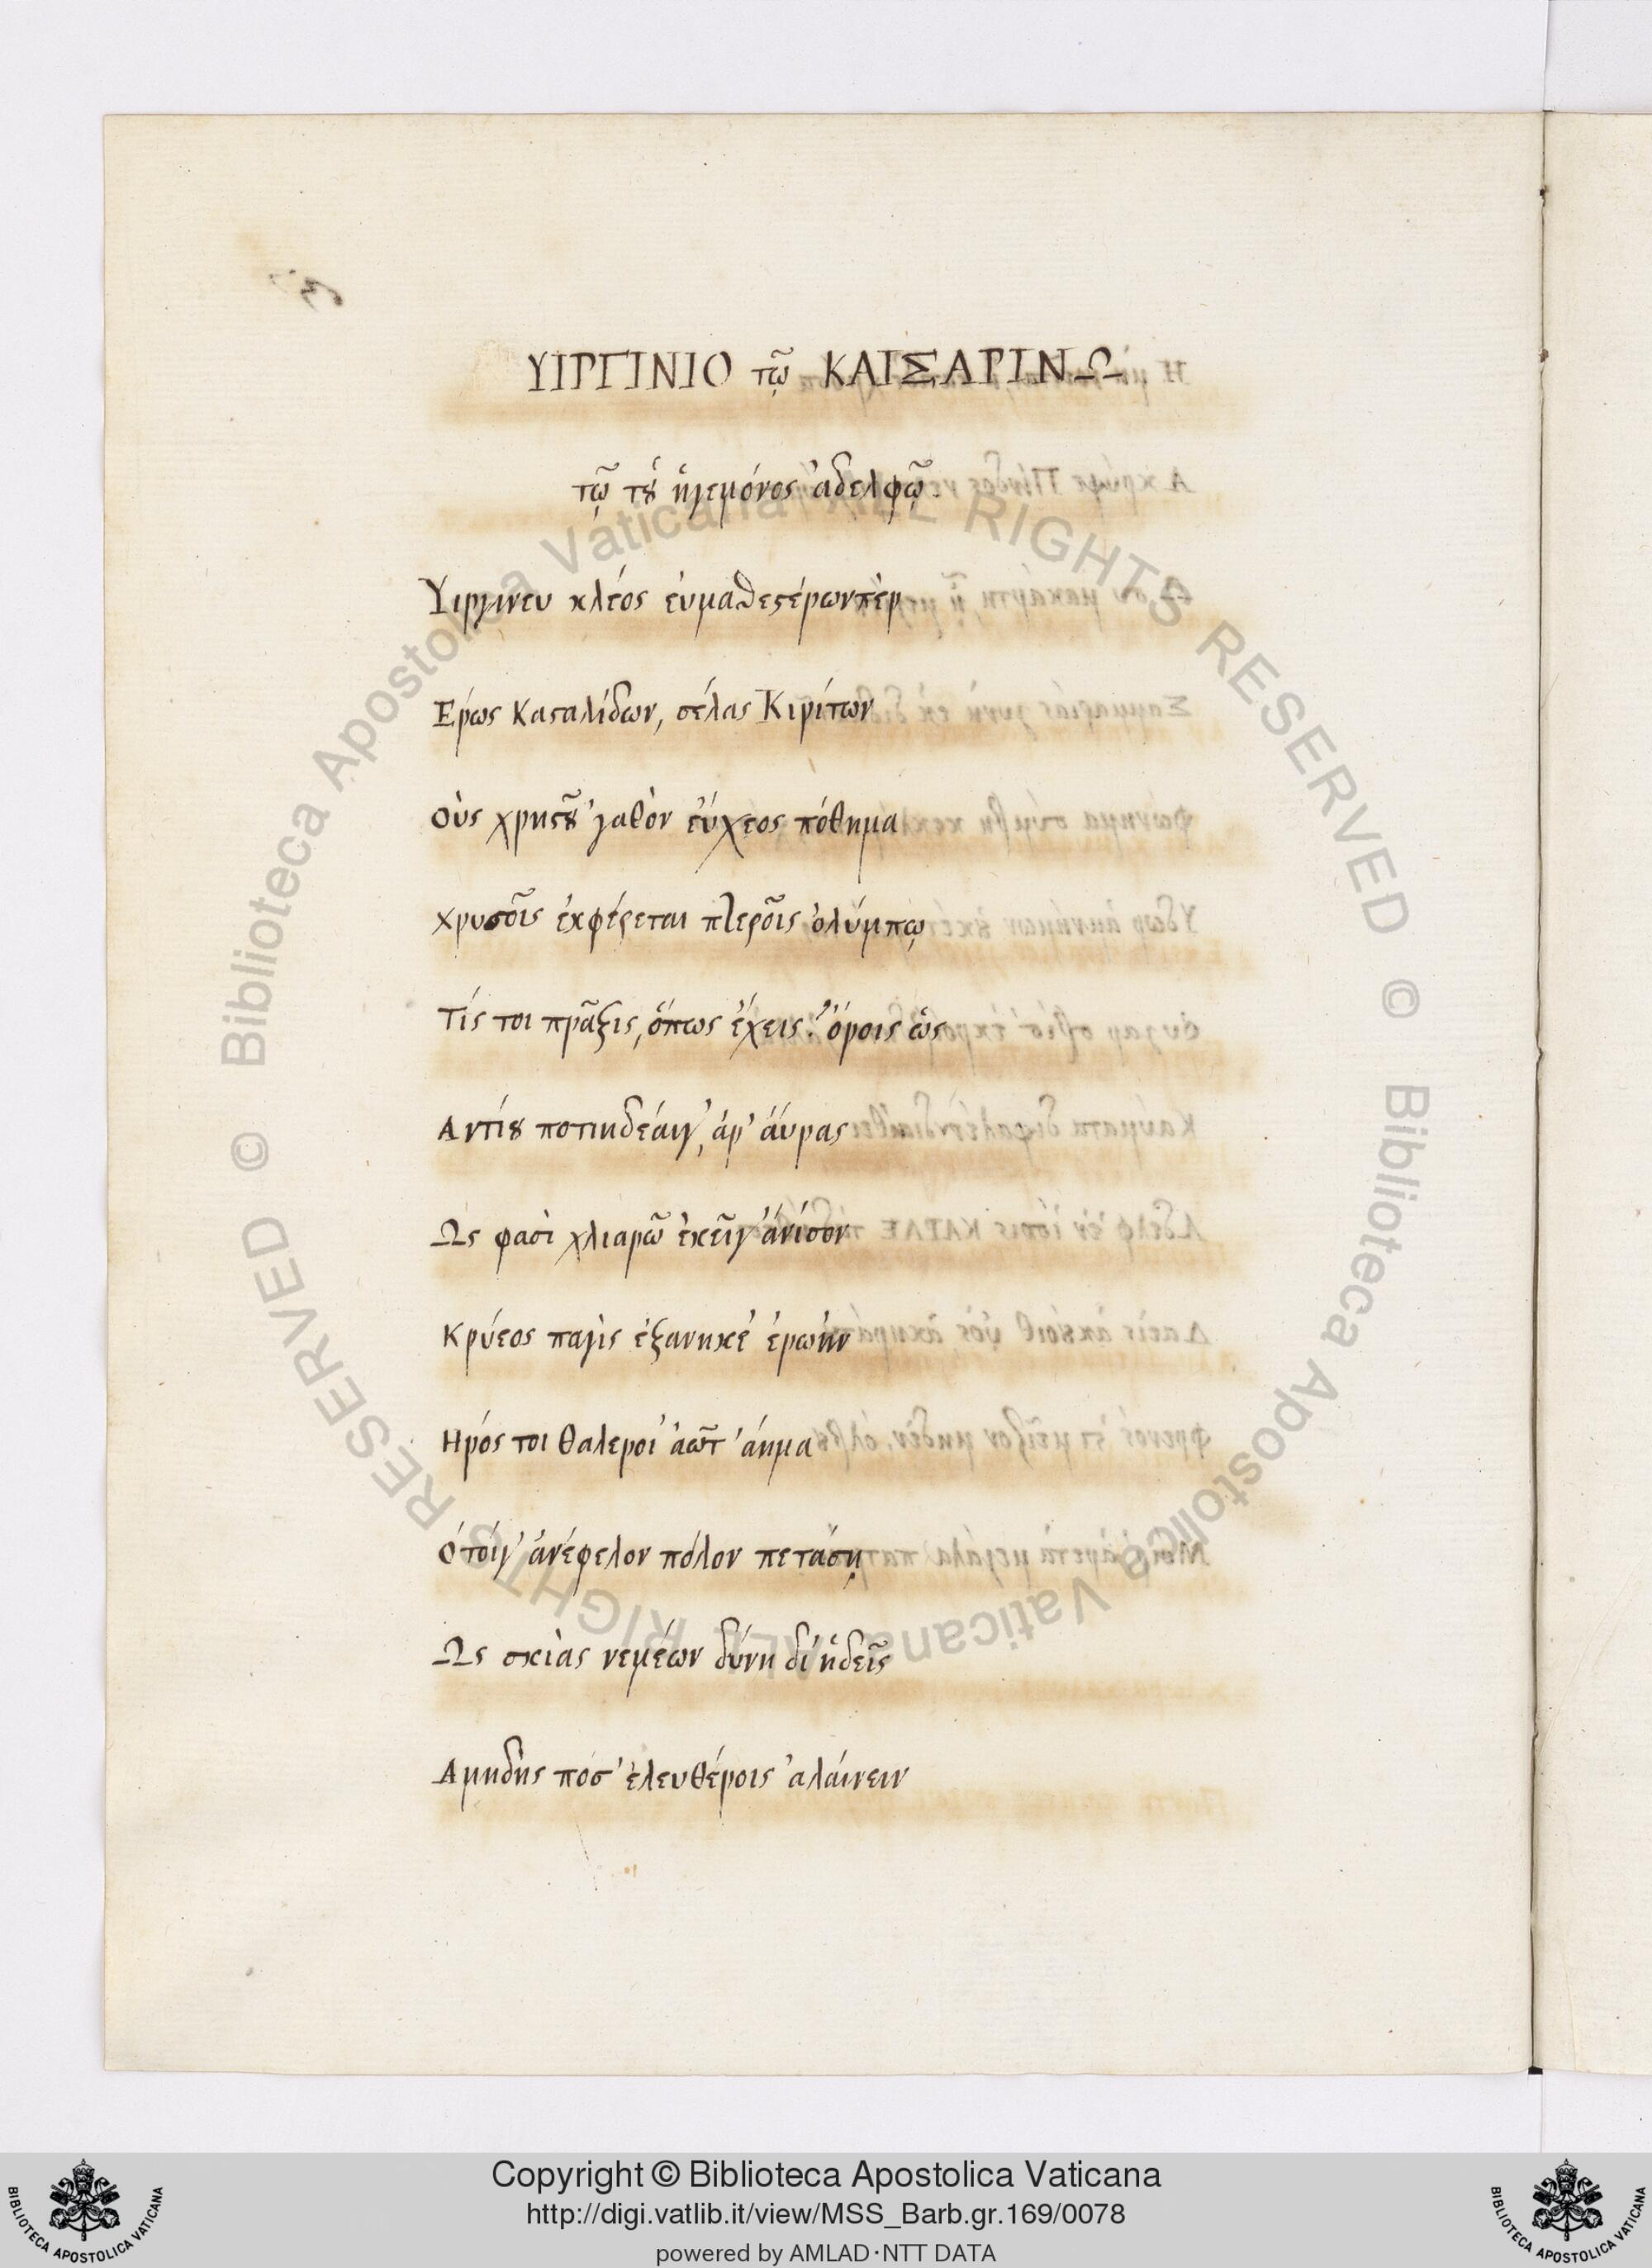 ΥΙΡΓΙΝΙΟ τῷ ΚΑΙΣΑΡΙΝΩ
τῷ τȣ͂ ἡγεμόνος ἀδελφῷ.
Υιργινευ κλέος ἐυμαθεςέρωνπὲρ
Ερως Καςαλίδων, σέλας Κιρίτων
οὑς χρηςȣ͂ ʼγαθὸν ἐύχεος πόθημα
χρυσοῖς ἐκφέρεται πτεροῖς ὀλύμπῳ
Τίς τοι πρᾶξις, ὅπως ἔχεις; ὄροις ὡς
Αντίȣ ποτι αρʼ ἄυρας
Ως φασὶ χλιαρῶ ἐκεῖν ἄνισον
Κρύεος παγὶς ἐξανηκέ ἐρωὴν
Ηρός τοι θαλεροί ἀῶτ ʼάημα
Οτόιγʼ ἀνέφελον πόλον πετάση
Ως σκιὰς νεμέων δύνη δίʼ ἡδεῖς
Αμηδης πόσʼ ἐλευθέροις ἀλάινειν
© Biblioteca Apostolica Vaticana ALL RIGHTS RESERVED
© Biblioteca Apostolica Vaticana ALL RIGHTS RESERVED
BIBLIOTECA APOSTOLICA VATICANA
Copyright © Biblioteca Apostolica Vaticana
http://digi.vatlib.it/view/MSS_Barb.gr.169/0078
powered by AMLAD·NTT DATA
BIBLIOTECA APOSTOLICA VATICANA